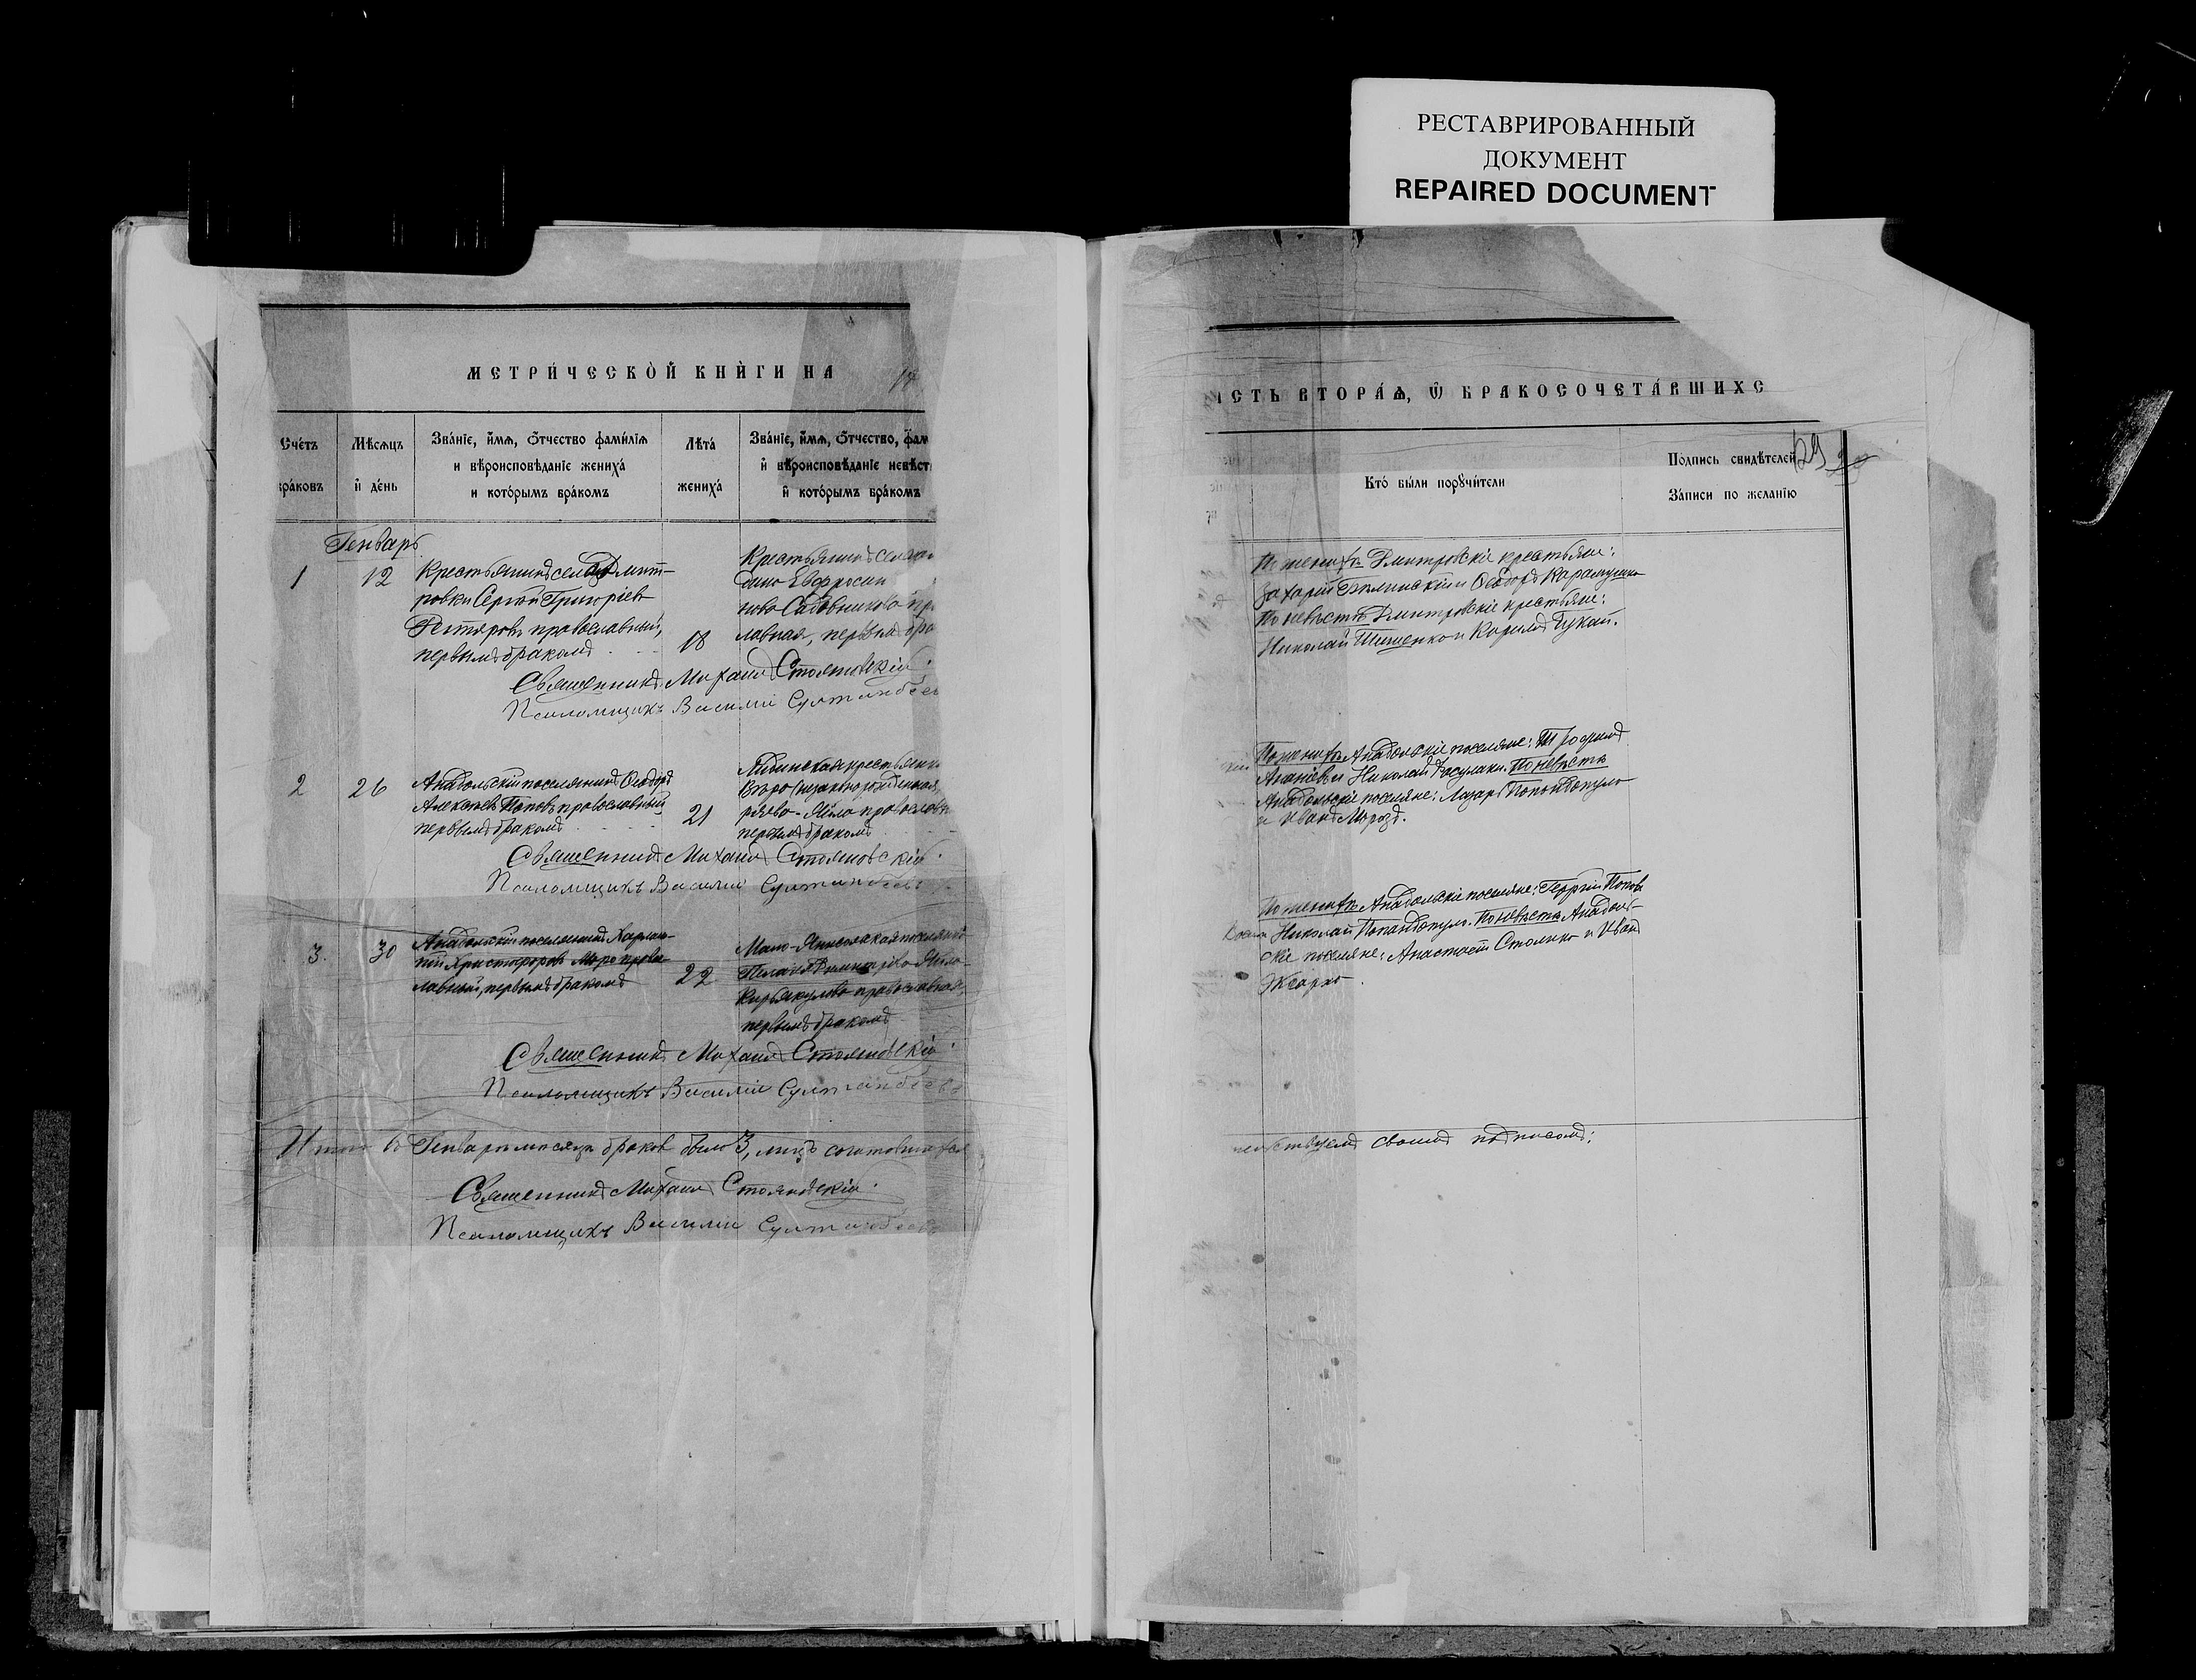 РЕСТАВРИРОВАННЫЙ
ДОКУМЕНТ
REPAIRED DOCUMENT
МЕТРИ́ЧЕСКОЙ КНИ́ГИ НА
Сче́тъ
враковъ
Мѣсѧцъ
и де́нь
Зва́нїе, и́мѧ, ѻ҆́тчество фами́лїѧ
и вѣроисповѣданїе жениха̀
и кото́рымъ бра́комъ
Лѣта̀
жениха̀
Зва́нїе, и́мѧ, ѻ҆́тчество, фам
и вѣроисповѣданїе невѣст
и кото́рымъ бра́комъ
Генварь
1
12
Крестьянинъ села Дмит-
ровки Сергій Григоріевъ
православный,
первымъ бракомъ
18
Крестьянинъ села
Евфросин
нова Садовникова пр
лавная, первымъ бра
Священникъ Михаилъ Стояновскій.
Псаломщикъ Василій Султанбеевъ
2
26
Анадольскій поселянинъ Ѳеодоръ
Алексѣевъ Поповъ православный
первымъ бракомъ
21
крестьянка
православн
первымъ бракомъ
Священникъ Михаилъ Стояновскій.
Псаломщикъ Василій Султанбеевъ
3.
30
Анадольскій поселянинъ Харлам-
пій Христофоровъ Мора право
лавный, первымъ бракомъ
22
Мало-Янисольская поселянка
Пелагія
православная,
первымъ бракомъ
Священникъ Михаилъ Стояновскій.
Псаломщикъ Василій Султанбеевъ
Итого въ Генварѣ мѣсяцѣ браковъ было 3, лицъ сочетовшихся
Священникъ Михаилъ Стояновскій.
Псаломщикъ Василій Султанбеевъ
СТЬ ВТОРА́Ѧ, Ѽ БРАКОСОЧЕТА́ВШИХС
Кто̀ бы́ли порꙋчи́тели
По́дпись свидѣ́телей
За́писи по жела́нїю
129
По женихѣ Дмитровскіе крестьяне:
Захарій Бѣлинскій и Ѳеодоръ Карамушко
По невѣстѣ Дмитровскіе крестьяне:
Николай Шишенко и Кирилъ Цукай.
По женихѣ Анадольскіе поселяне: Трофимъ
Ананіевъ и Николай Расулаки. По невѣстѣ
Анадольскіе поселяне: Лазарь Попандопуло
и Иванъ Морозъ.
По женихѣ Анадольскіе поселяне: Георгій Поповъ
Николай Попандопуло. По невѣстѣ Анадоль-
скіе поселяне: Анастасій Стоянко и Иванъ
Эксархо.
свидѣтельствуемъ своимъ подписомъ: